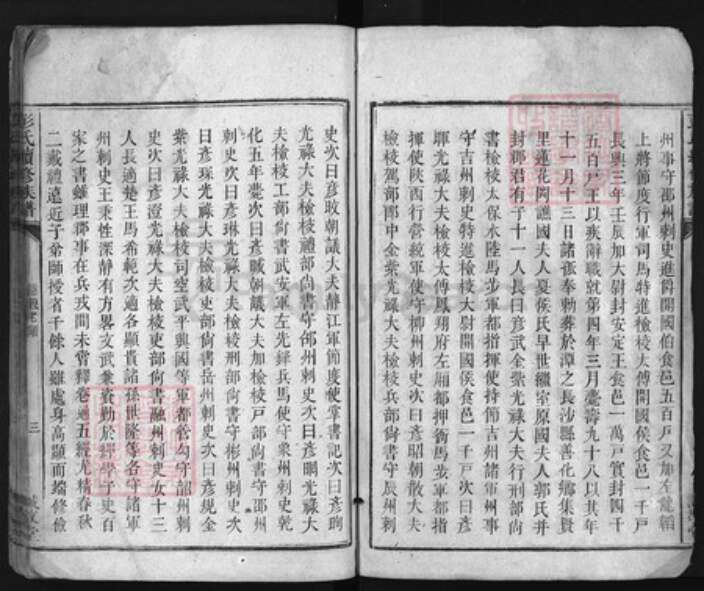 州事守邵州刺史進爵開國伯食邑五百戸又加左龍韜
上將節度行軍司馬特進檢校太傅開國侯食邑一千戸
長興三年壬辰加大尉封安定王食邑一萬戸實封四千
五百戸王以疾辭職就第四年三月薨壽九十八以其年
十一月十三日諸孤奉勅葬於潭之長沙縣善化鄉集賢
里蓮花岡譙國夫人夏侯氏早世繼室原國夫人郭氏并
封郡君有子十一人長曰彦武金紫光祿大夫行刑部尙
書檢校太保水陸馬步軍都指揮使持節吉州諸軍州事
守吉州刺史特進檢校大尉開國侯食邑一千戸次曰彦
暉光祿大夫檢校太傅鳳翔府左廂都押衙馬步軍都指
揮使陝西行營統軍使守柳州刺史次曰彦昭朝散大夫
檢校駕部郎中金紫光祿大夫檢校兵部尙書守辰州刺
史次曰彦敗朝議大夫靜江軍節度使掌書記次曰彦昫
光祿大夫檢校禮部尙書守邵州刺史次曰彦晭光祿大
夫檢校工部尙書武安軍左先鋒兵馬使守衆州刺史乾
化五年薨次曰彦晠朝議大夫加檢校戸部尙書守邵州
刺史次曰彦琳光祿大夫檢校刑部尙書守郴州刺史次
曰彦琛光祿大夫檢校吏部尙書岳州刺史次曰彦規金
紫光祿大夫檢校司空武平興國等軍都管勾守韶州刺
史次曰彦澄光祿大夫檢校吏部尙書融州刺史女十三
人長適楚王馬希範次適各顯貴諸孫世隆等各守諸軍
州刺史王秉性深靜有方畧文武兼資勤於經學子史百
家之書雖理郡事在兵戎間未甞釋卷通五經尤精春秋
二戴禮遠近子弟師授省千餘人雖處身高顯而端修儉
彭氏續修族譜
三